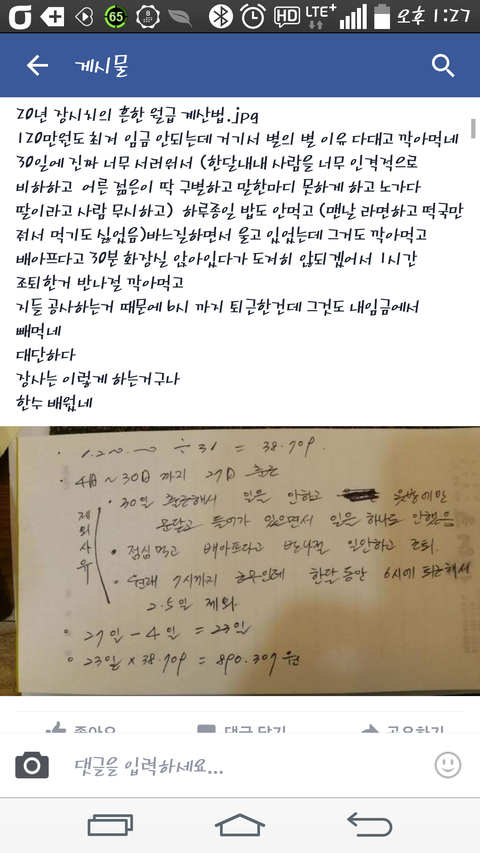 65 8 HD LTE+ 오후 1:27
게시물
20년 장사치의 흔한 월급 계산법.jpg
120만원도 최저 임금 안되는데 거기서 별의 별 이유 다대고 깍아먹네
30일에 진짜 너무 서러워서 (한달내내 사람을 너무 인격적으로
비하하고 어른 젊은이 딱 구별하고 말한마디 못하게 하고 노가다
딸이라고 사람 무시하고) 하루종일 밥도 안먹고 (맨날 라면하고 떡국만
줘서 먹기도 싫었음)바느질하면서 울고 있었는데 그거도 깍아먹고
배아프다고 30분 화장실 앉아있다가 도저히 안되겠어서 1시간
조퇴한거 반나절 깍아먹고
지들 공사하는거 때문에 6시 까지 퇴근한건데 그것도 내임금에서
빼먹네
대단하다
장사는 이렇게 하는거구나
한수 배웠네
1.200.000 ÷ 31 = 38.709.
4日 ~ 30日 까지 27日 출근
제외사유
30일 출근해서 일을 안하고 옷방에만
문닫고 들어가 있으면서 일은 하나도 안했음
점심먹고 배아프다고 반나절 일안하고 조퇴.
원래 7시까지 근무인데 한달동안 6시에 퇴근해서
2.5일 제외.
27일 - 4일 = 23일
23일 × 38.709 = 890.307원
좋아요 댓글 달기 공유하기
댓글을 입력하세요...